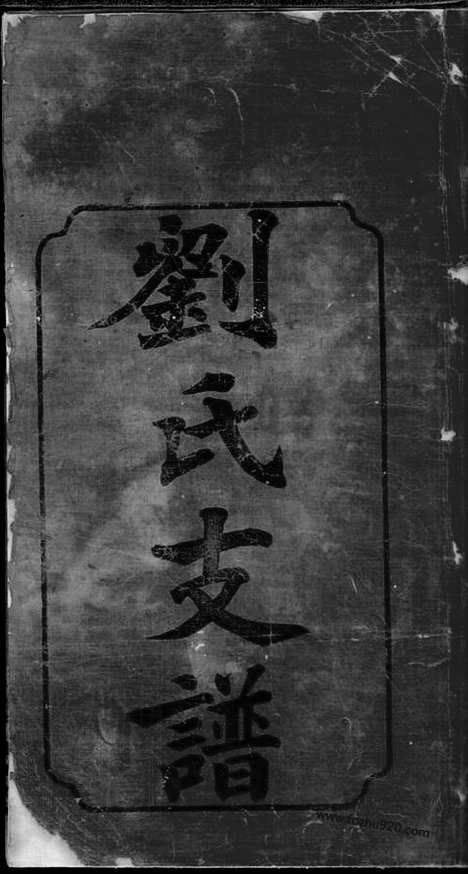 劉氏支譜
www.fozhu920.com